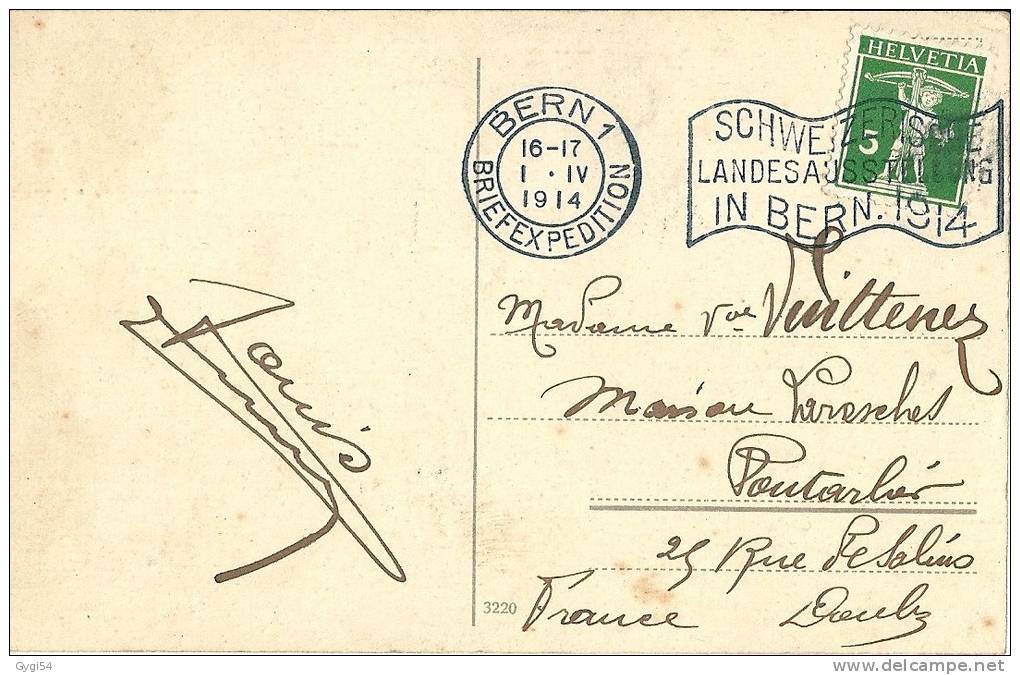 HELVETIA
5
BERN 1
16-17
1 · IV
1914
BRIEFEXPEDITION
SCHWEIZERISCHE
LANDESAUSSTELLUNG
IN BERN. 1914
Madame Vve Vuittenez
Maison
Pontarlier
25 Rue de Salins
France Doubs
Louis
3220
Gygi54
www.delcampe.net